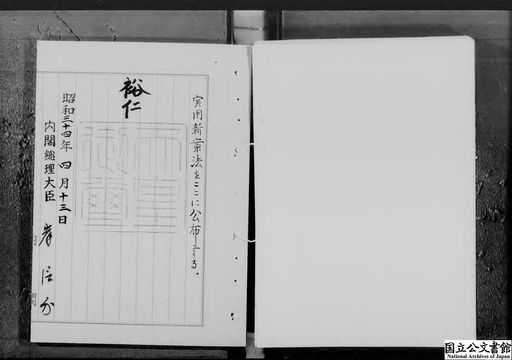 実用新案法をここに公布する。
裕仁
天皇御璽
昭和三十四年四月十三日
内閣総理大臣 岸信介
国立公文書館
National Archives of Japan